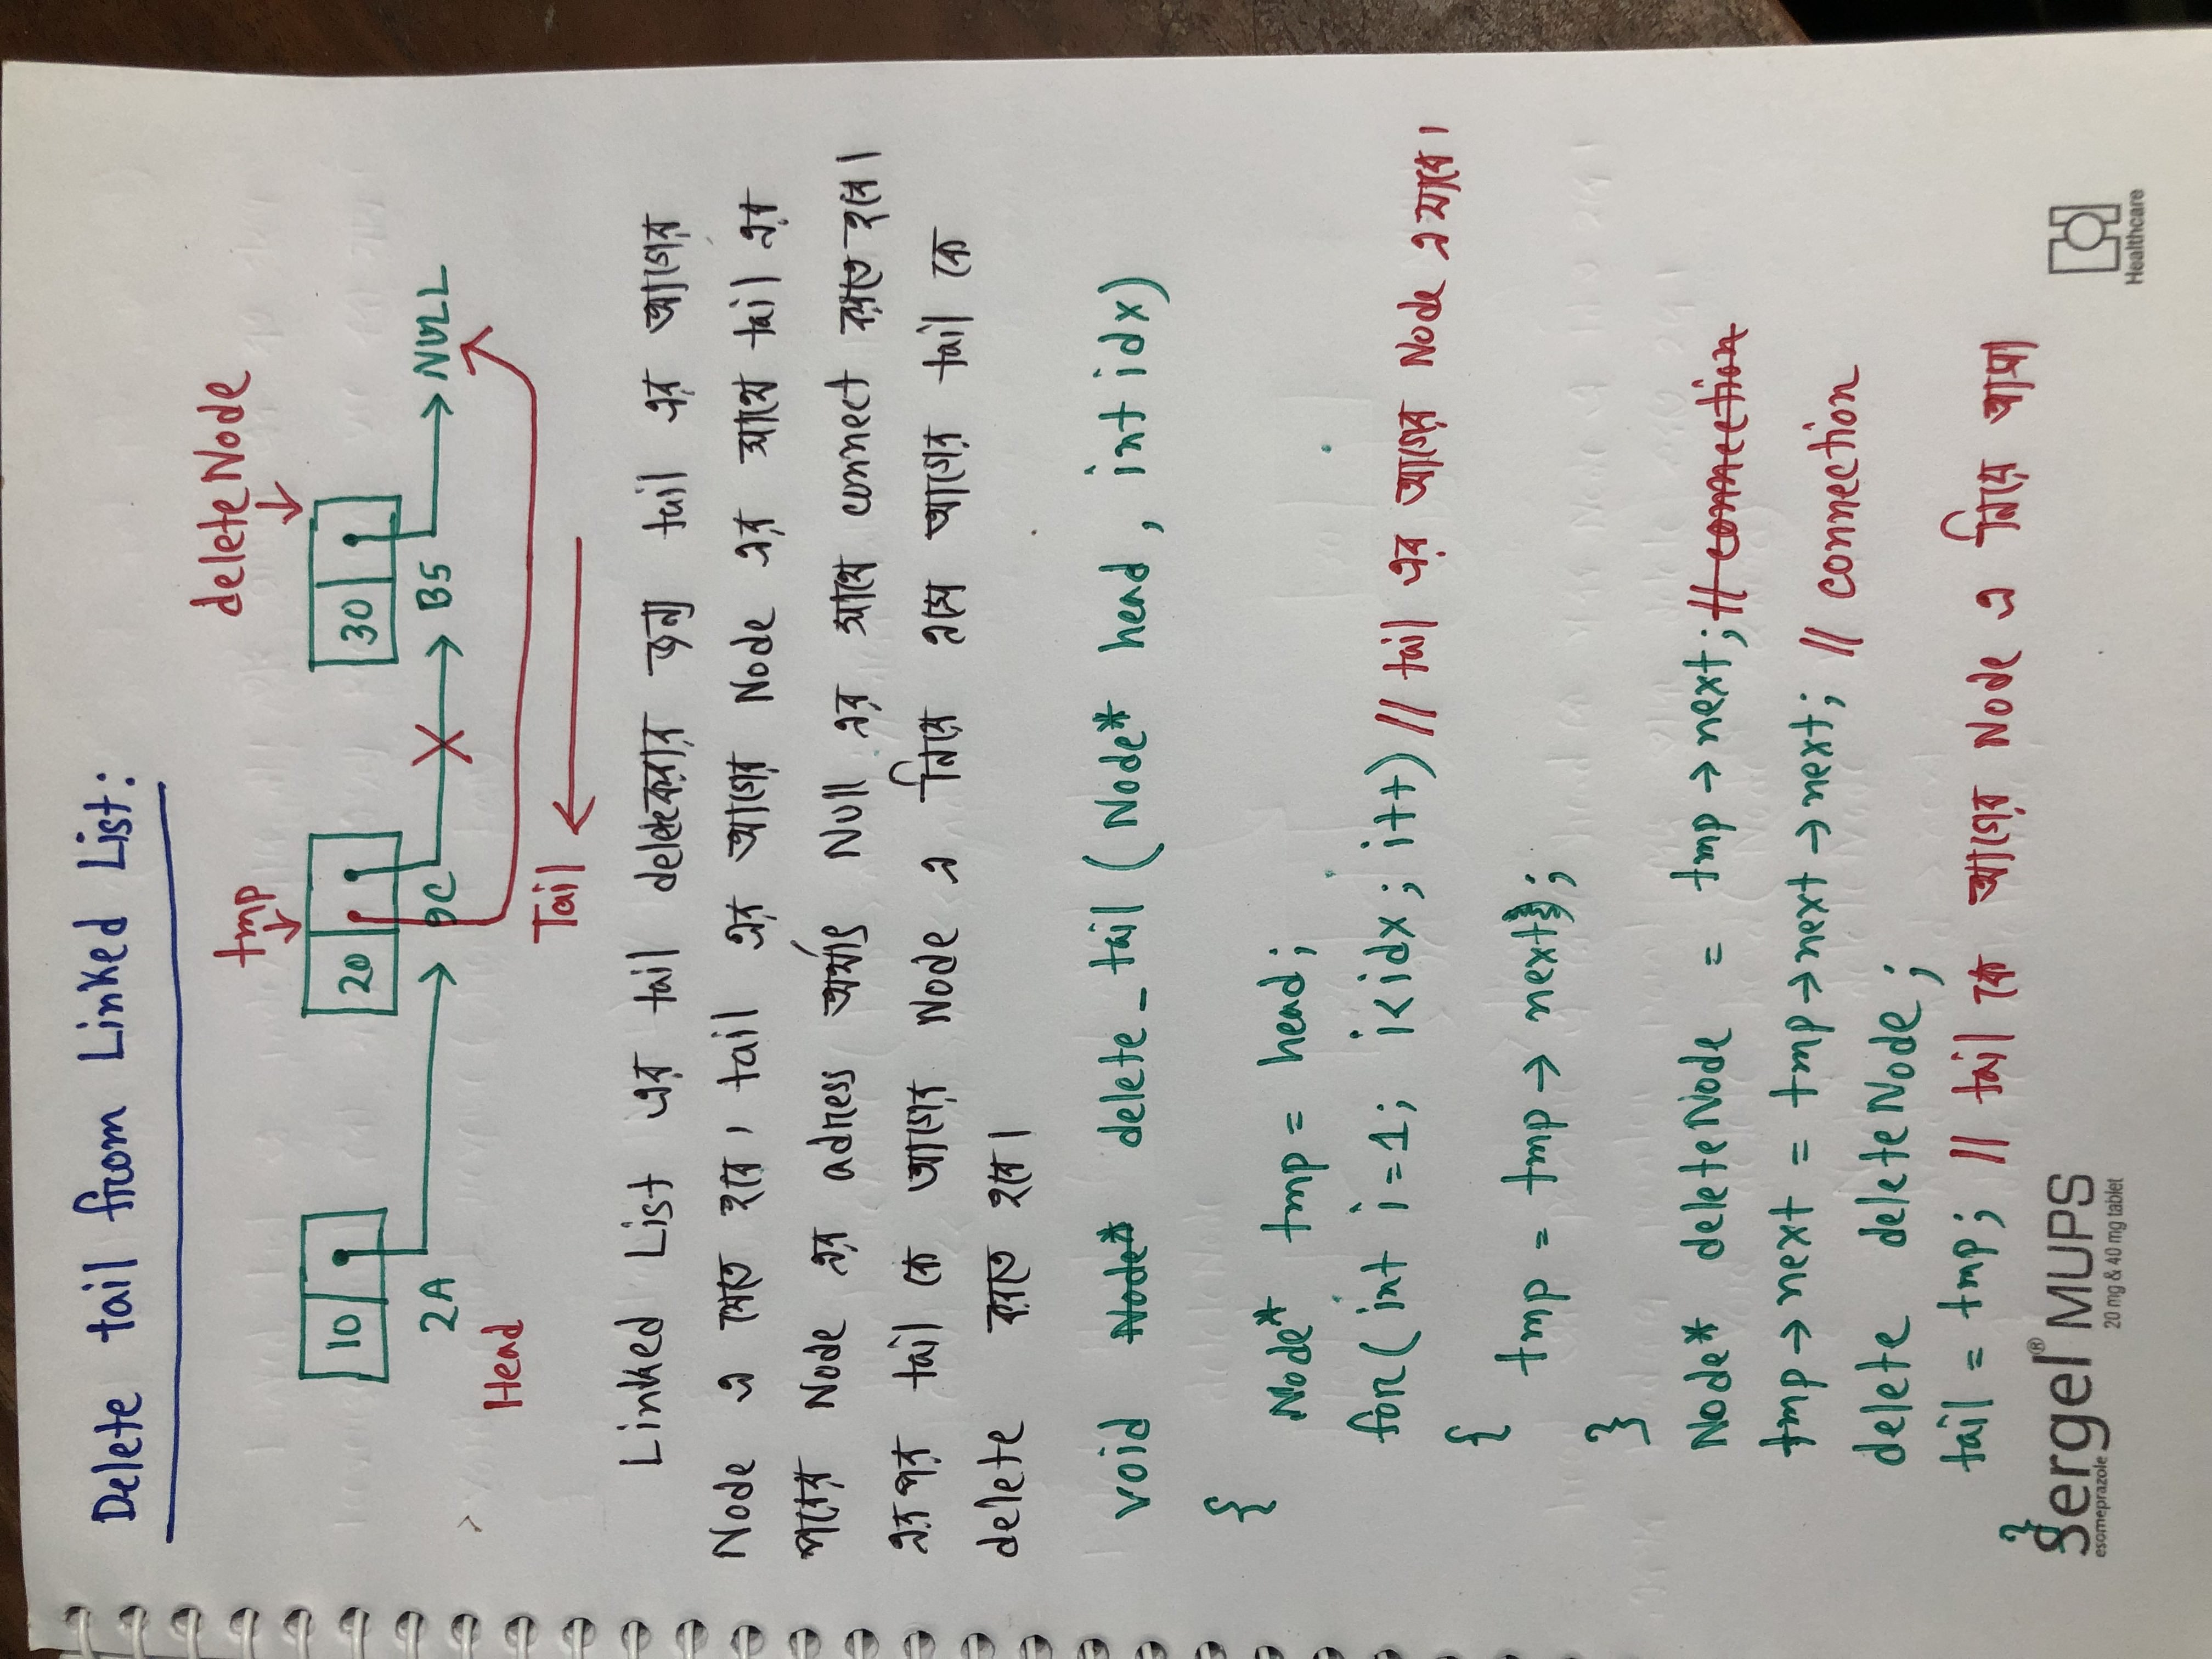 Delete tail from Linked List:
tmp
deleteNode
10
20
30
2A
9C
B5
NULL
Head
Tail
Linked List এর tail delete করার জন্য tail এর আগের
Node এ যেতে হবে। tail এর আগের Node এর সাথে tail এর
পরের Node এর adress অর্থাৎ Null এর সাথে connect করতে হবে।
এরপর tail কে আগের Node এ নিয়ে এসে আগের tail কে
delete করতে হবে।
void Node* delete_tail (Node* head, int idx)
{
Node* tmp = head;
for(int i=1; i<idx; i++) // tail এর আগের Node এ যাবে।
{
tmp = tmp→next;
}
Node* deleteNode = tmp→next; // connection
tmp→next = tmp→next→next; // connection
delete deleteNode;
tail = tmp; // tail কে আগের Node এ নিয়ে আসা
}
Sergel® MUPS
esomeprazole
20 mg & 40 mg tablet
Healthcare